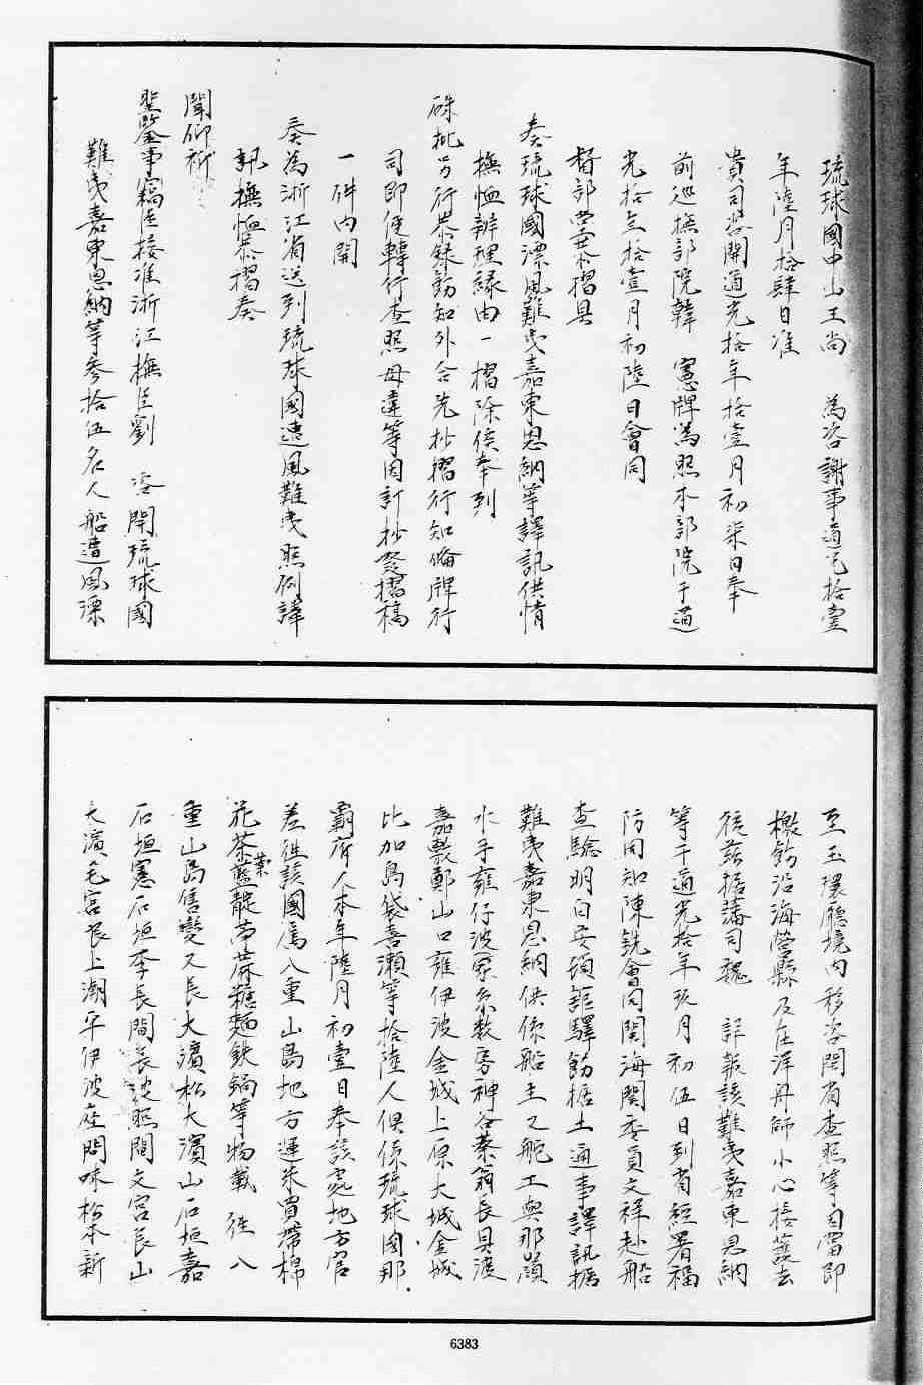 琉球國中山王尚　為咨謝事道光拾壹
年陸月拾肆日准
貴司咨開道光拾年拾壹月初柒日奉
前巡撫部院韓　憲牌為照本部院于道
光拾年拾壹月初陸日會同
督部堂孫恭摺具
奏琉球國漂風難夷嘉東恩納等譯訊供情
撫恤辦理緣由一摺除俟奉到
硃批另行恭錄飭知外合先抄摺行知備牌行
司即便轉行查照毋違等因計抄發摺稿
一件內開
奏為浙江省送到琉球國遭風難夷照例譯
訊撫恤恭摺奏
聞仰祈
聖鑒事竊臣接准浙江撫臣劉　咨開琉球國
難夷嘉東恩納等參拾伍名人船遭風漂
至玉環廳境內移咨閩省查照等因當即
檄飭沿海營縣及在洋舟師小心接護去
後茲據藩司魏　詳報該難夷嘉東恩納
等于道光拾年玖月初伍日到省經署福
防同知陳銑會同閩海關委員文祥赴船
查驗明白安頓館驛飭據土通事譯訊據
難夷嘉東恩納供係船主又舵工與那嶺
水手雍仔波冢系數房神谷蔡翁長具渡
嘉敷鄭山口雍伊波金城上原大城金城
比加島袋喜瀨等拾陸人俱係琉球國那
霸府人本年陸月初壹日奉該處地方官
差徃該國屬八重山島地方運米買帶棉
花茶葉藍靛苧蔴糖麵鉄鍋等物載徃八
重山島售變又長大濱松大濱山石垣嘉
石垣憲石垣季長間長波照間文宮良山
大濱毛宮良上潮平伊波座間味松本新
6383